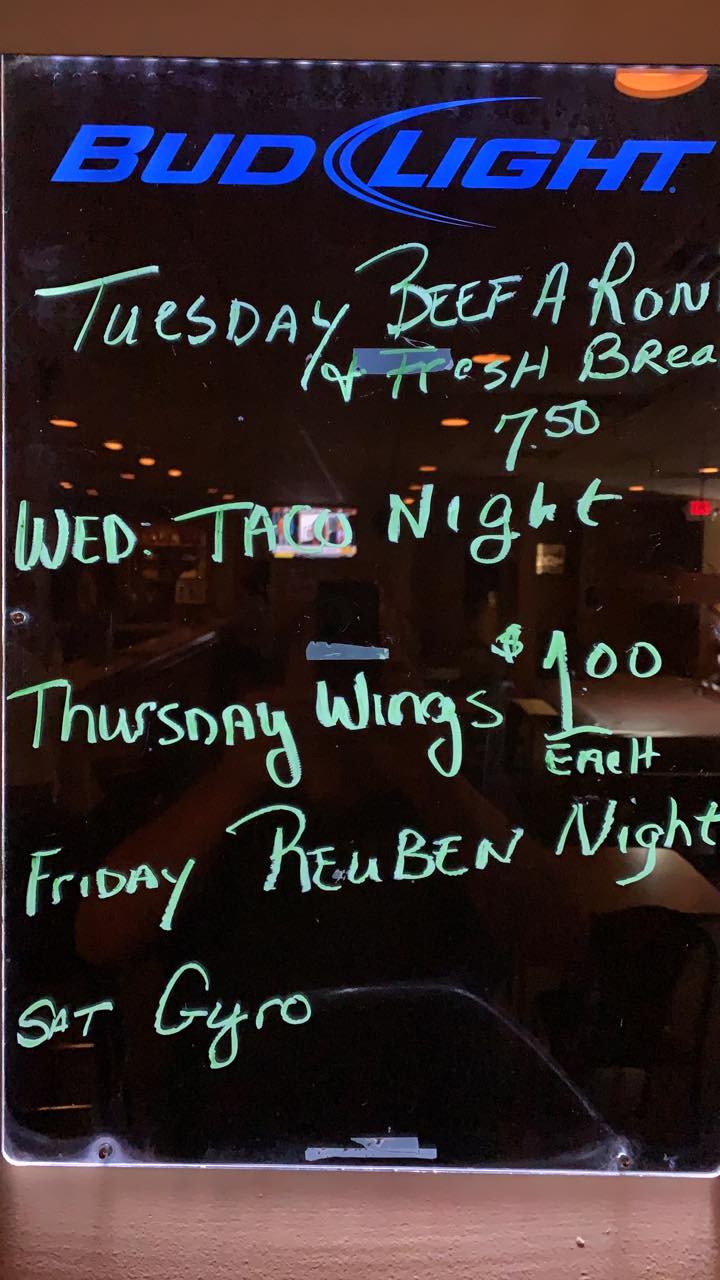 BUD LIGHT
TuesDAy BEEF A RON
& FresH BRea
7.50
WED. TACO Night
ThursDAy Wings $1.00
EAcH
FriDAy REuBEN Night
SAT Gyro